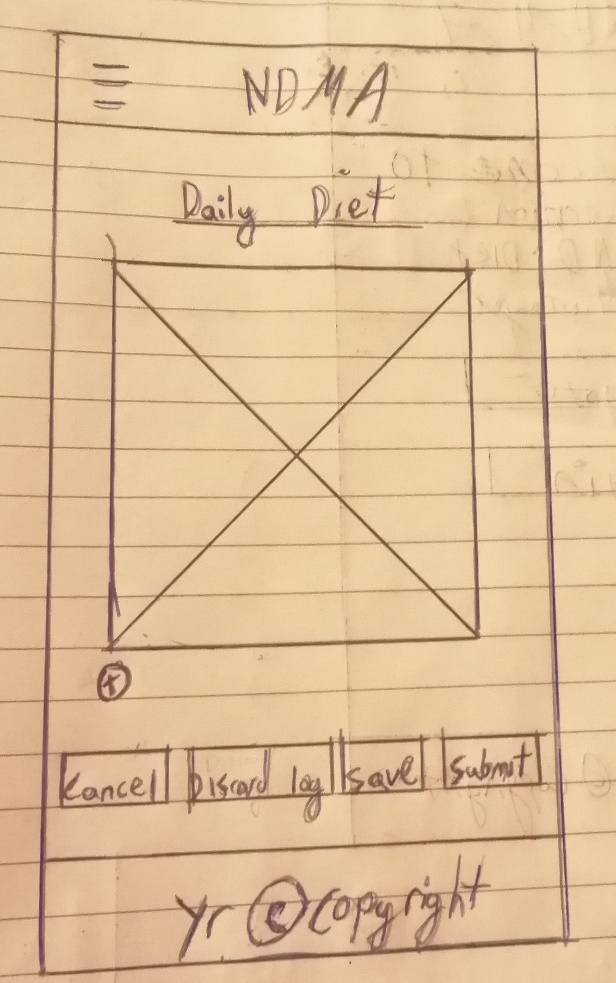 NDMA
Daily Diet
+
Cancel Discard log Save Submit
Yr © copyright